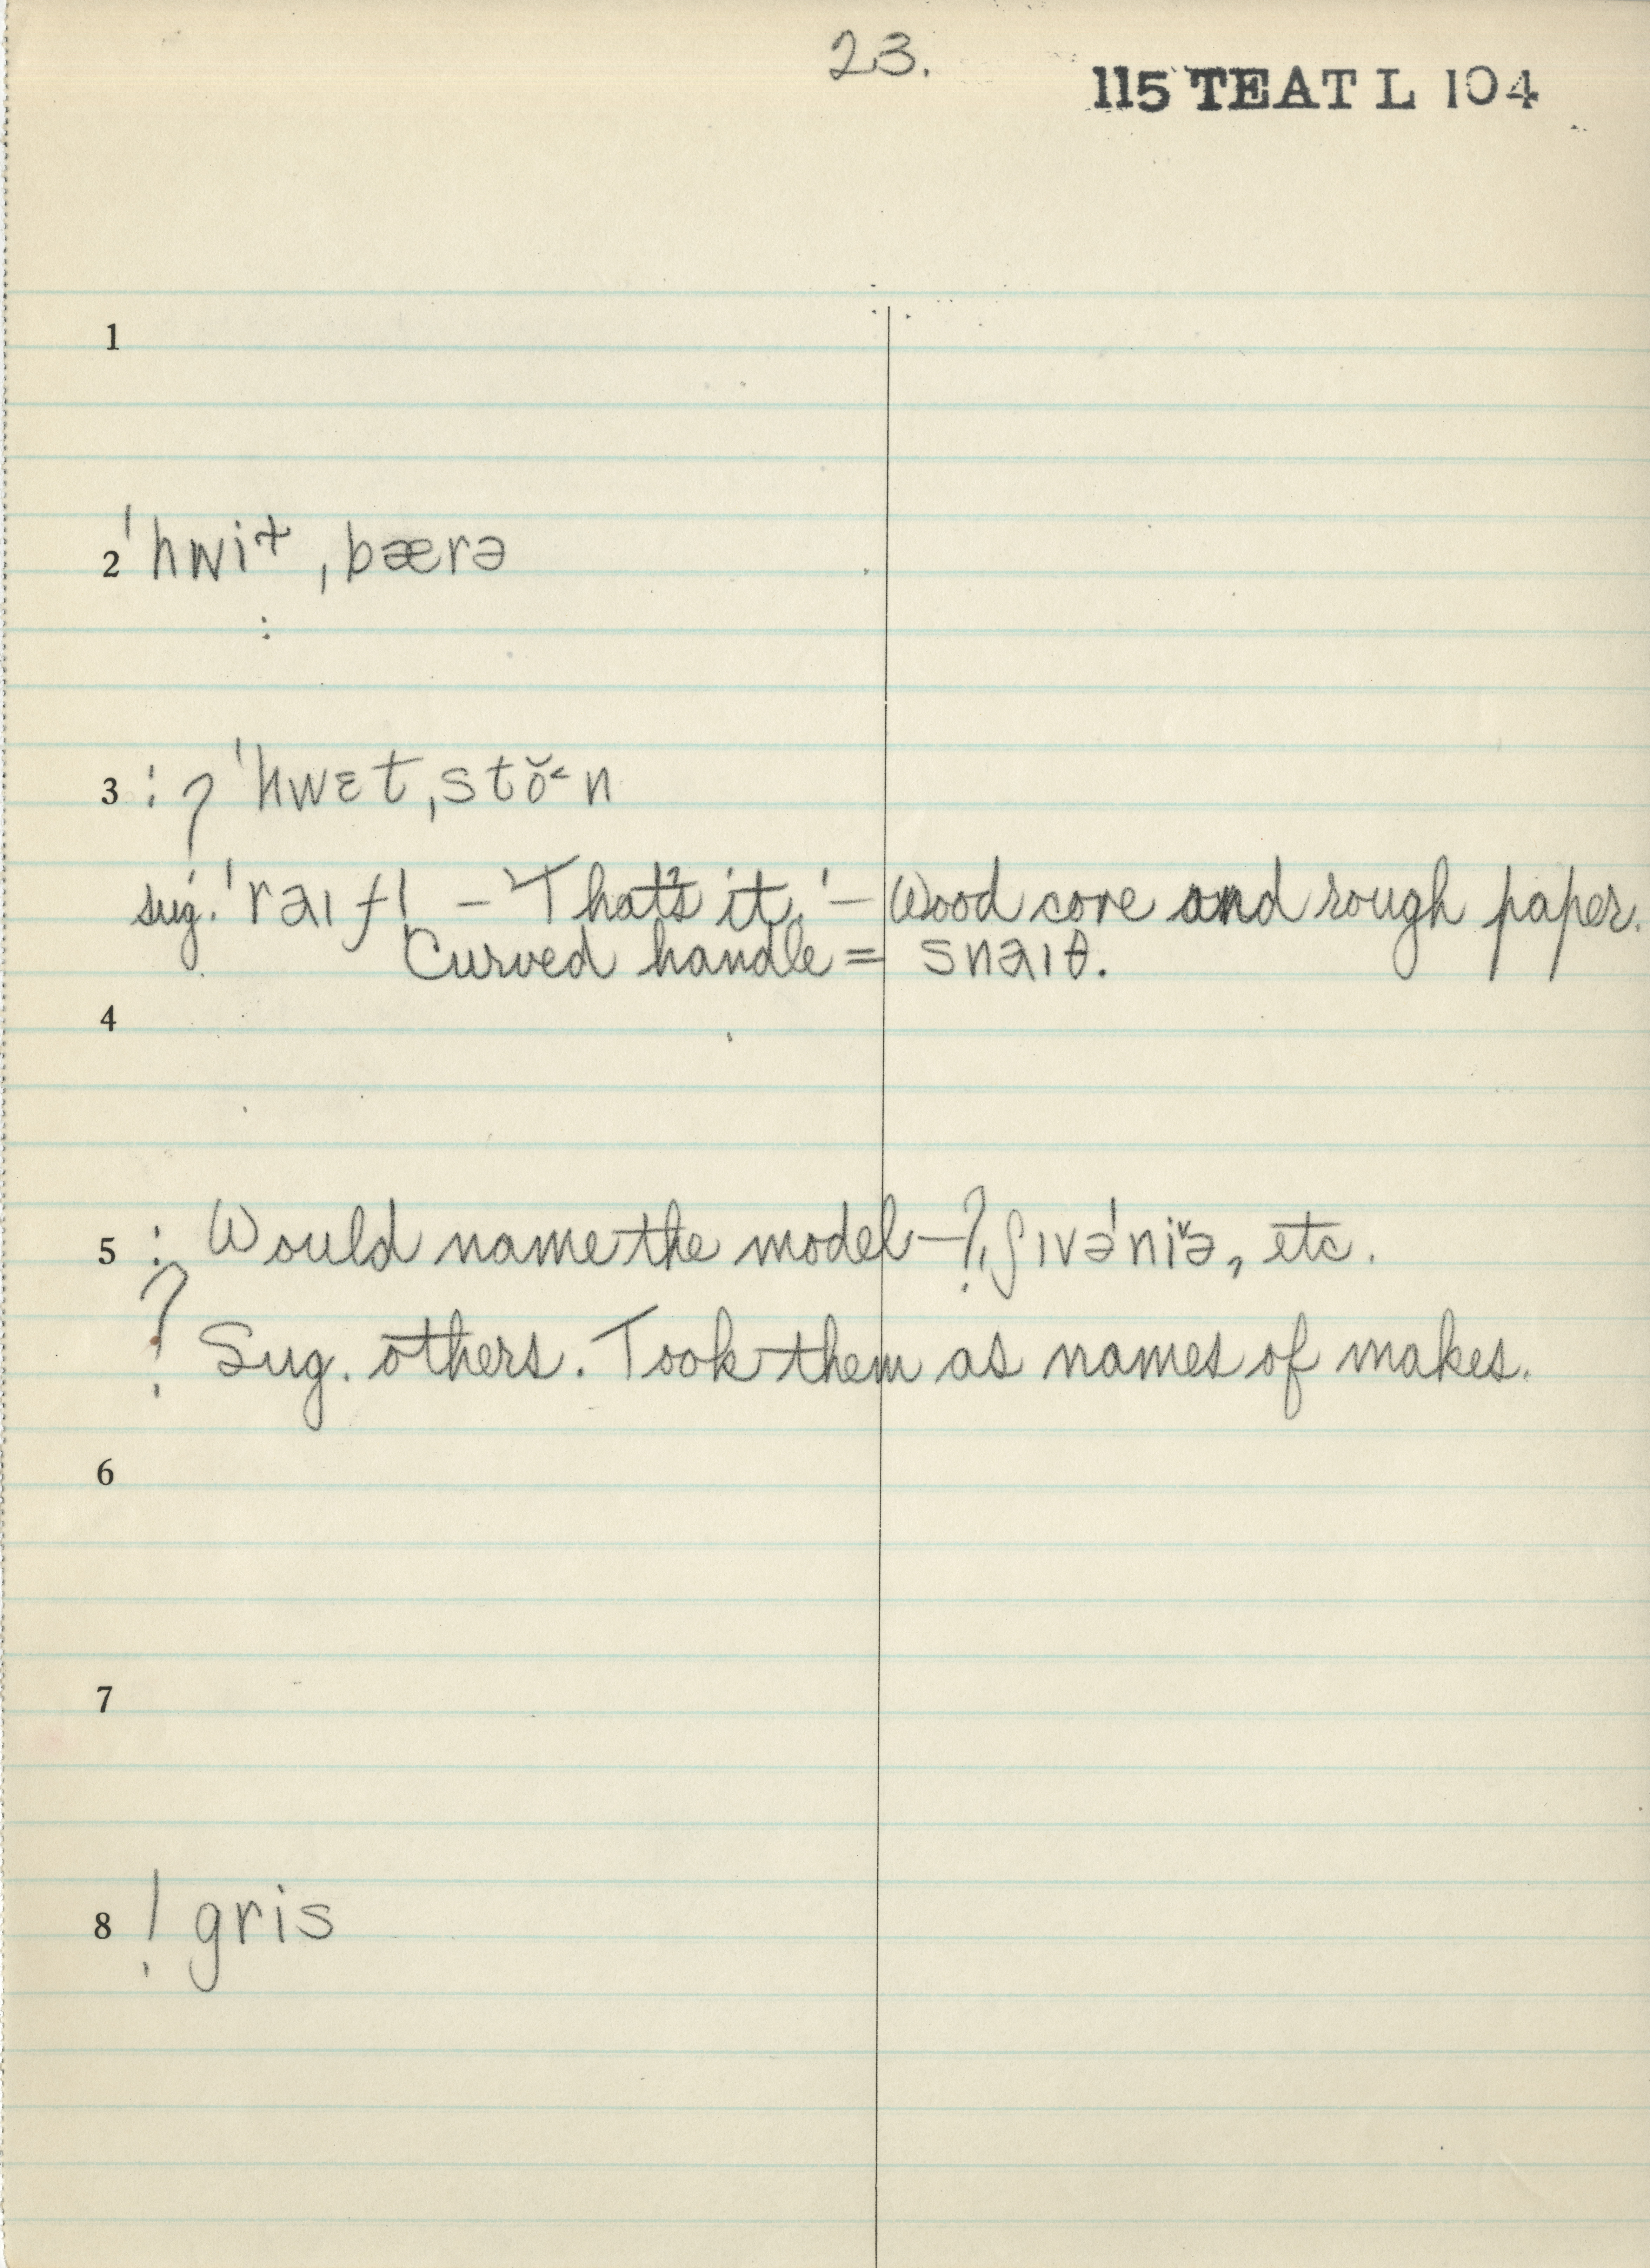 23.
115 TEAT L 104
1
2 ˈhwi˔ ˌbærə
:
3 : ? ˈhwɛt ˌstŏ˂n
sug. ˈraɪfl̩ – 'That's it.' – Wood core and rough paper.
Curved handle = snaɪθ.
4
5 : Would name the model – ? ʃɪvəˈniˇə, etc.
? Sug. others. Took them as names of makes.
6
7
8 ! gris